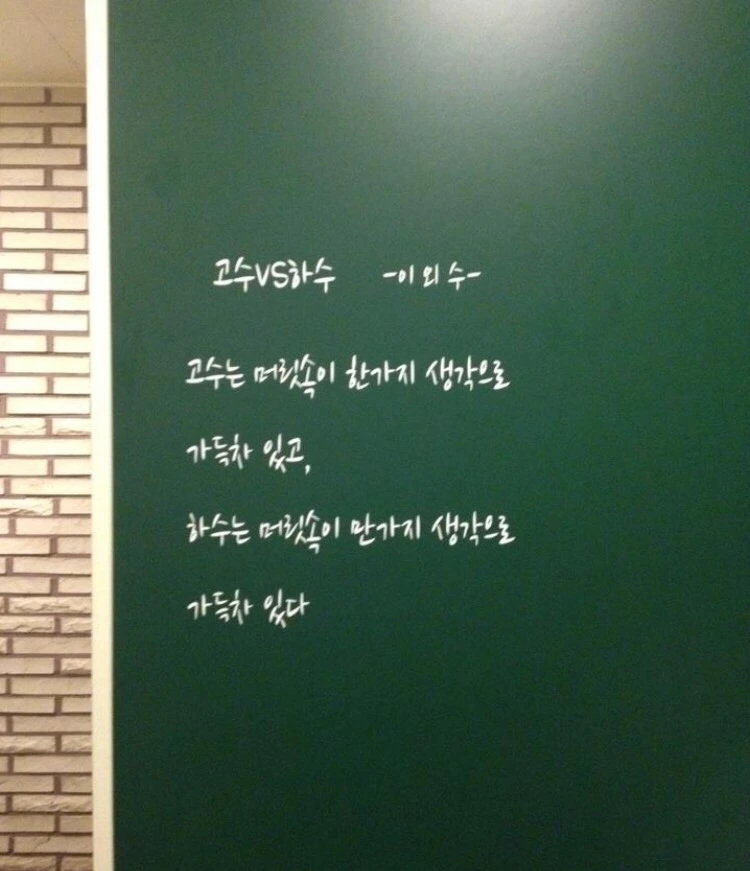 고수VS하수 -이외수-
고수는 머릿속이 한가지 생각으로
가득차 있고,
하수는 머릿속이 만가지 생각으로
가득차 있다